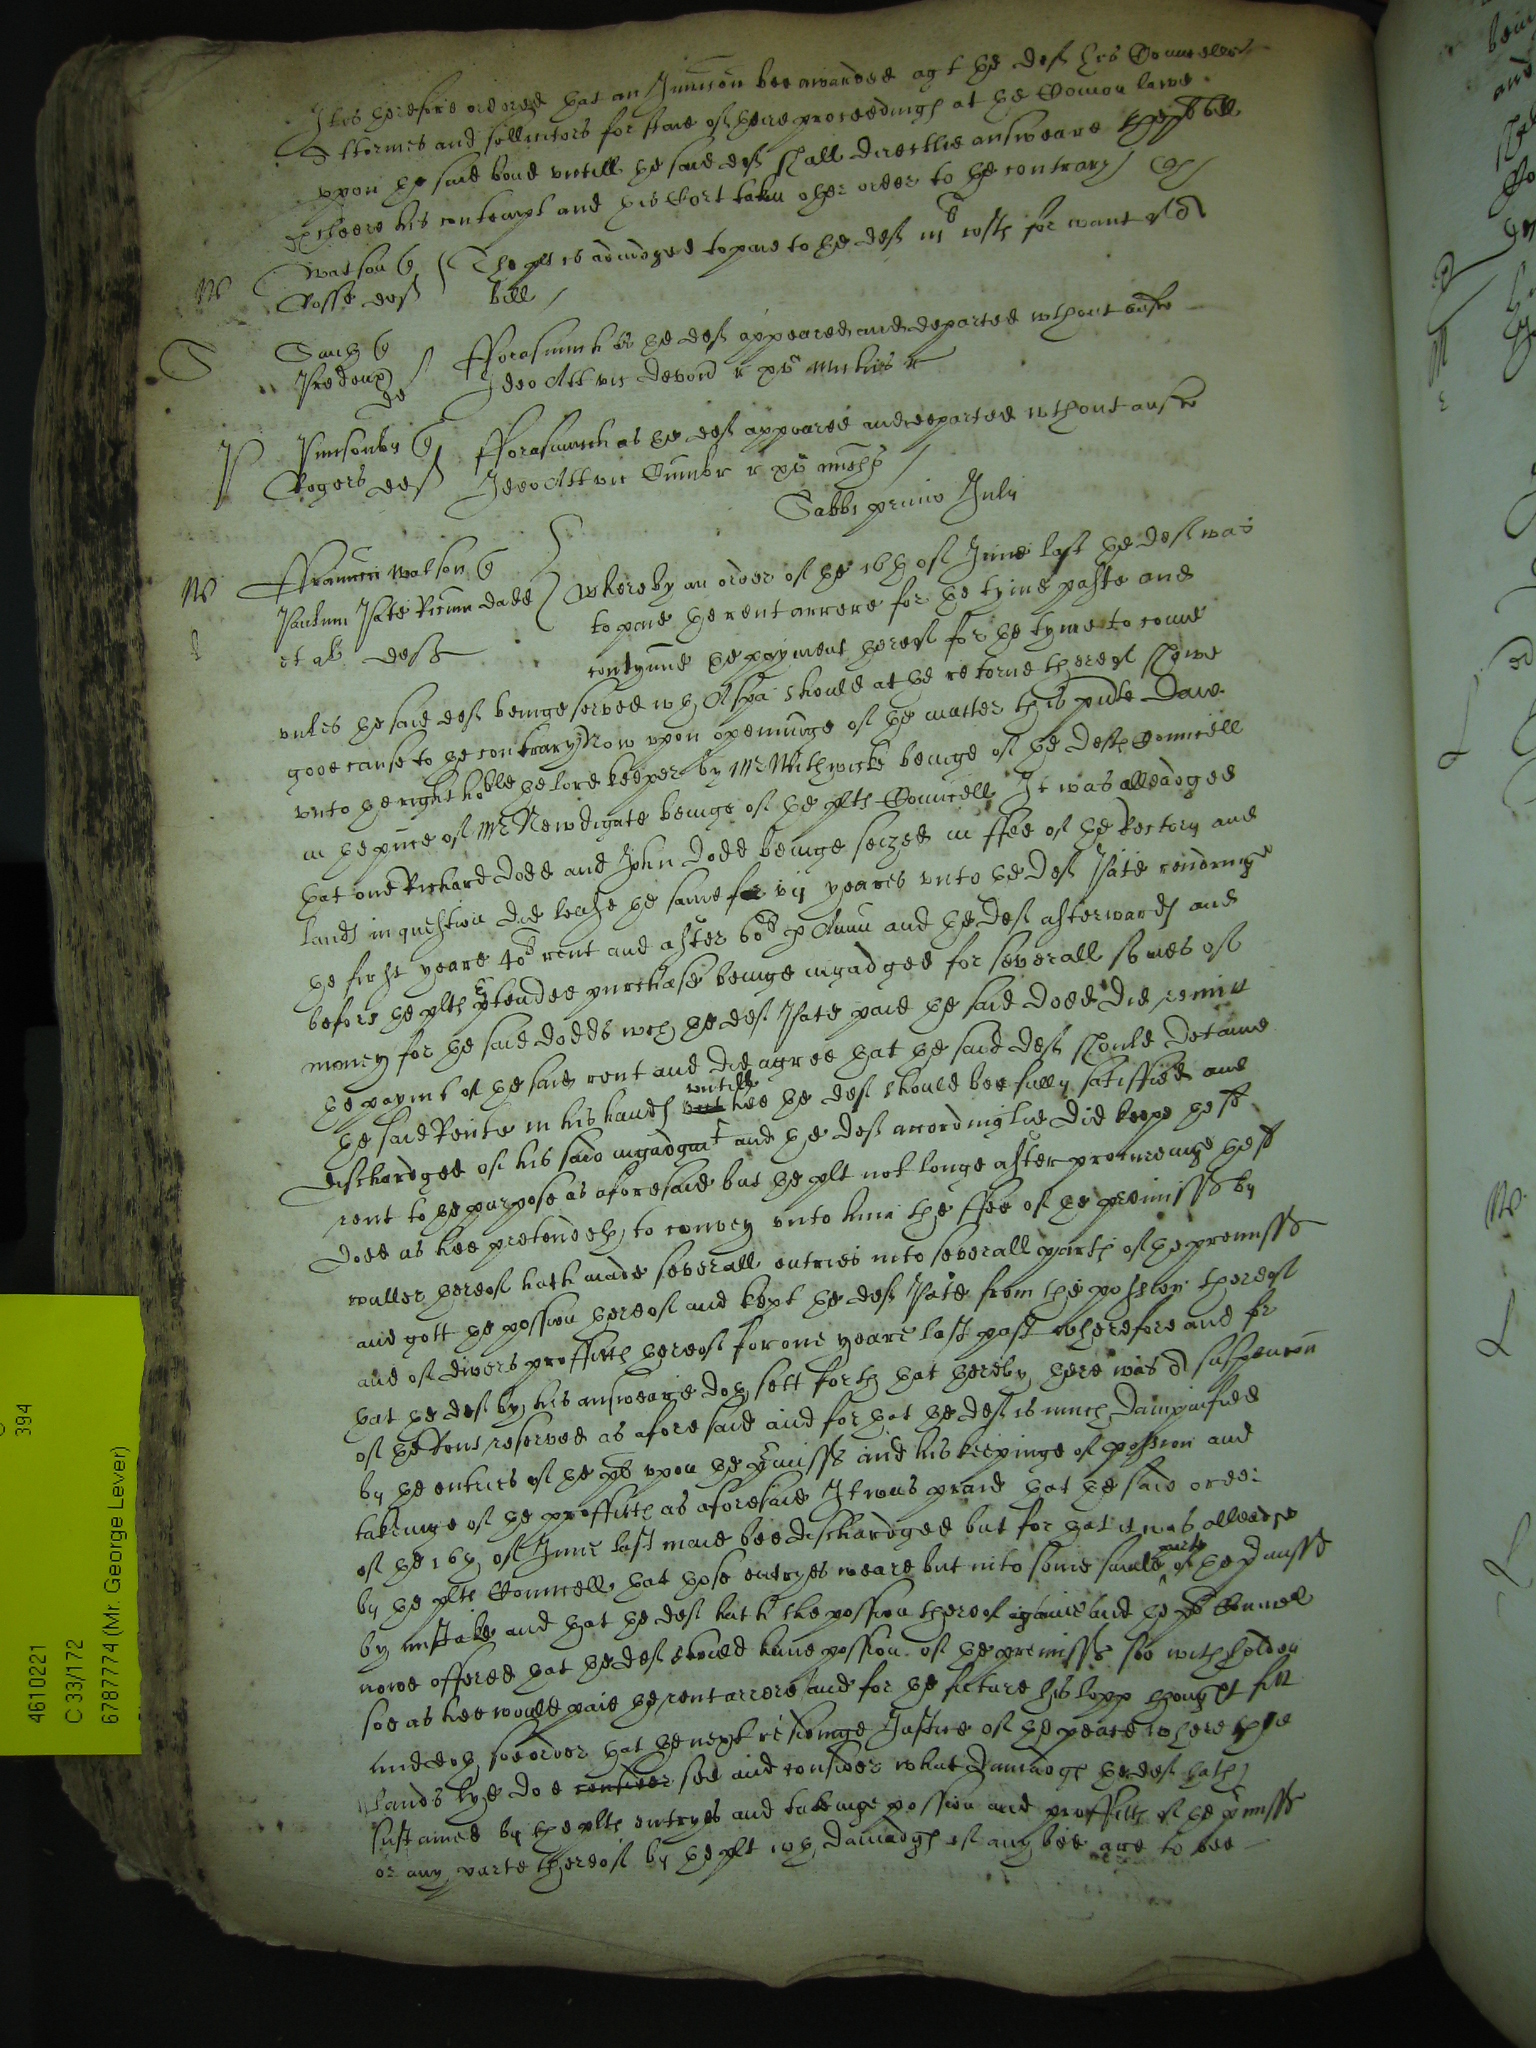 It is therefore ordered that an Iniuncon bee awarded agt the deft his Councellors
Attornies and sollicitors for staie of theire proceedings at the Comon lawe
vpon the said bond vntill the said deft shall directlie answeare the plts bill
cleere his contempt and this Cort take other order to the contrary
W Watson q The plt is adiudged to paie to the deft costs for want of a
Cosse deft bill
S q fforasmuch as the deft appeared and departed wthout answere
Prideaux def Ideo Att vic Devon r
P Punsonby q fforasmuch as the deft appeared and departed wthout answere
Rogers deft Ideo Att vic Cumbr r
Sabbi primo Julij
W Watson q
Pate Ricum Dodd Whereby an order of the 16th of June last the deft was
et al defts to paie the rent arrere for the tyme paste and
contynue the payment thereof for the tyme to come
vnles the said deft beinge served wth a Spa should at the retorne thereof shewe
good cause to the contrary Now vpon openninge of the matter this pnte daie
vnto the right hoble the lord keeper by Mr beinge of the defts Councell
in the pnce of Mr Newdigate beinge of the plts Councell It was alleadged
that one Richard Dodd and John Dodd beinge seized in ffee of the Rectory and
lands in question did lease the same for vij yeares vnto the deft Pate rendringe
the first yeare rent and after p Annu and the deft afterwards and
before the plts ptended purchase beinge ingadged for severall somes of
money for the said Dodds wch the deft Pate paid the said Dodd did remitt
the paymt of the said rent and did agree that the said deft should detaine
the said Rente in his hands vntill hee the deft should bee fully satisfied and
discharged of his said ingadgmt and the deft accordinglie did keepe the sd
rent to the purpose as aforesaid but the plt not longe after procureinge the sd
Dodd as hee pretendeth to convey vnto him the ffee of the premisses by
thereof hath made severall entries into severall parts of the premisses
and gott the possion thereof and kept the deft Pate from the possion thereof
and of divers proffitts thereof for one yeare last past wherefore and for
that the deft by his answeare doth sett forth that thereby there was a suspencon
of the Rent reserved as aforesaid and for that the deft is much dampnified
by the entries of the plt vpon the pmisses and his keepinge of possion and
takeinge of the proffitts as aforesaid It was praid that the said order
of the 16th of June last maie bee discharged but for that it was alleadged
by the plts Councell that those entryes weare but into some smale parte of the pmisses
by mistake and that the deft hath the possion thereof againe and the plts Councell
nowe offered that the deft should haue possion of the premisses soe withholden
soe as hee would paie the rent arrere and for the future his lopp thought fitt
and doth soe order that the next residinge Justice of the peace where the
lands lye doe see and consider what damadge the deft hath
sustained by the plts entryes and takeinge possion and proffitts of the pmisses
or any parte thereof by the plt wch damadges if any bee are to bee
4610221
C 33/172
6787774 (Mr. George Lever)
394